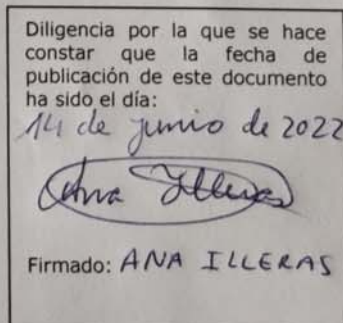 Diligencia por la que se hace
constar que la fecha de
publicación de este documento
ha sido el día:
14 de junio de 2022
Ana Illeras
Firmado: ANA ILLERAS